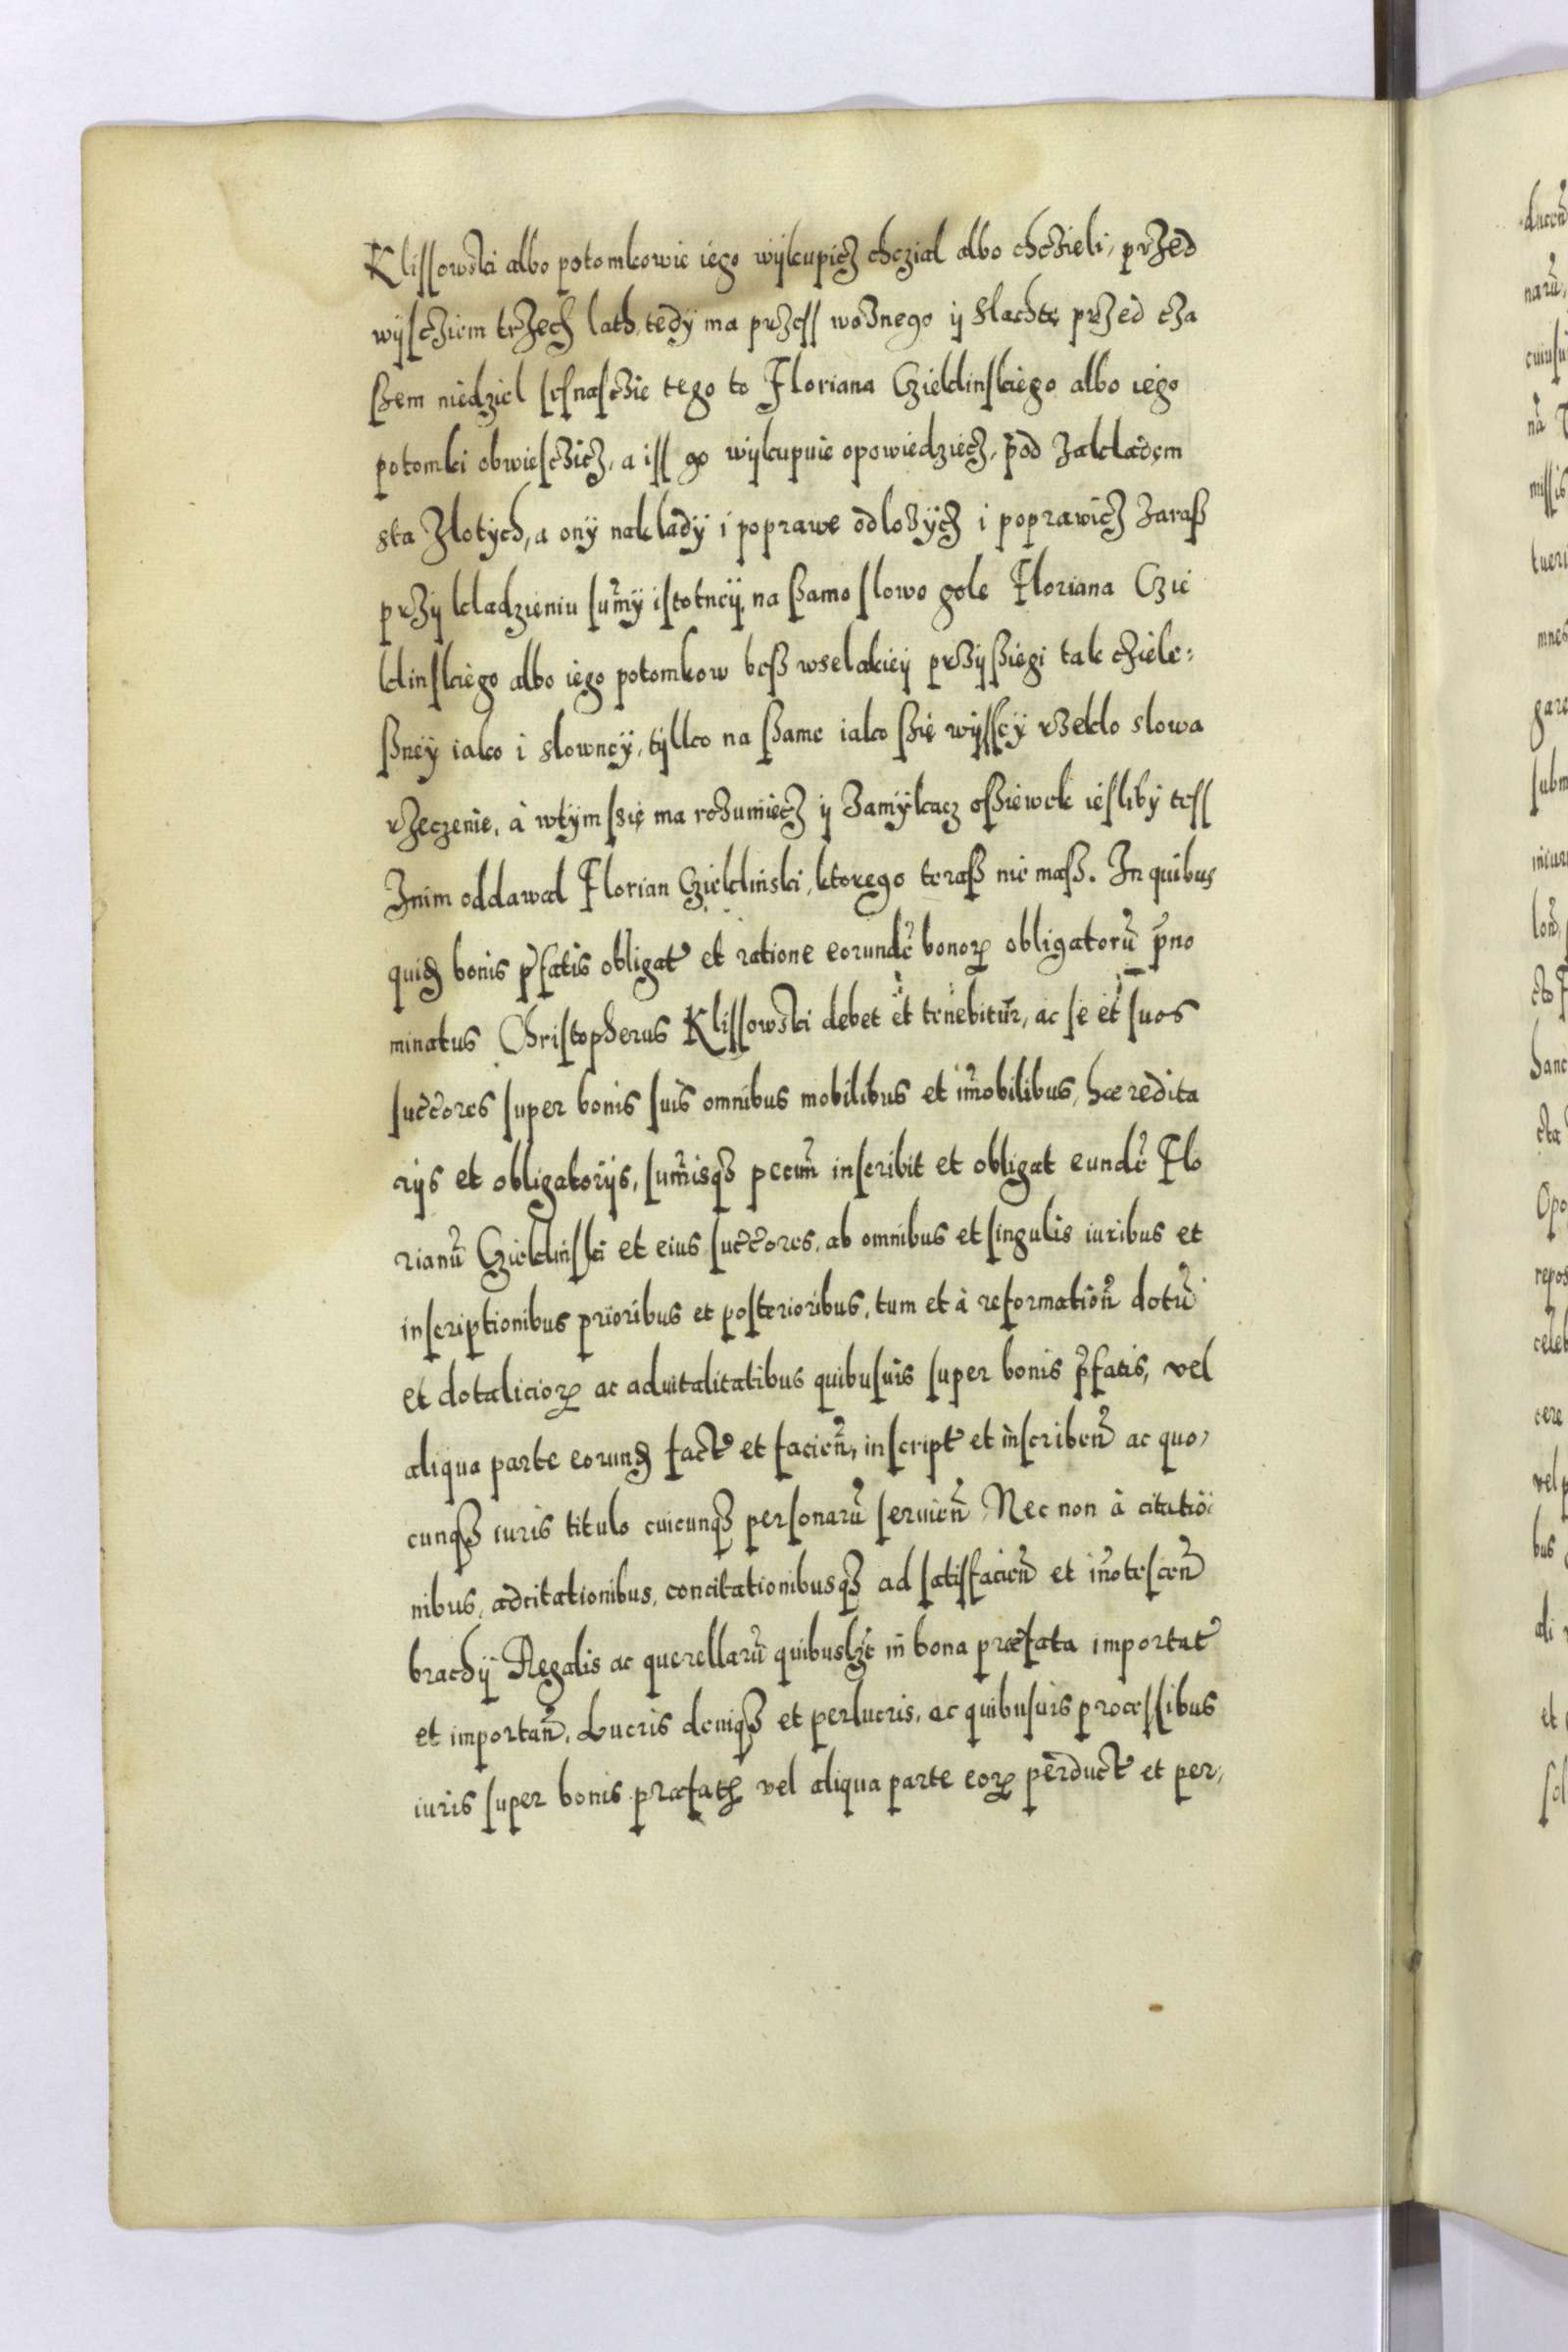 Klissowski albo potomkowie iego wÿkupicz chczial albo chczieli, przed
wÿsczięm trzech lath, tedÿ ma przess woznego ÿ slachtę przed cza
ssem niedziel sesnasczie tego to Floriana Cziekłinskiego albo iego
potomki obwiesczicz, a iss go wÿkupuie opowiedziecz, pod zakładem
sta Złotÿch, a onÿ nakładÿ i poprawe odlozÿcz i poprawicz zaraß
przÿ kładzieniu sum̃ÿ istotneÿ, na ßamo słowo gołe Floriana Czie
klinskiego albo iego potomkow beß wselakieÿ przÿßięgi tak cziele=
ßneÿ iako i słowneÿ, tÿlko na ßame iako ßię wÿsseÿ rzekło słowa
rzeczenie, à wtÿm szię ma rozumiecz ÿ zamÿkacz oßiewek ieslibÿ tess
Znim oddawał Florian Cziekliński, ktorego teraß nie maß. In quibus
quid bonis p̃fatis obligat̃ et ratione eorundẽ bonoꝝ obligatorũ p̃no
minatus Christopherus Klissowski debet et tenebitur, ac se et suos
succ̃ores super bonis suis omnibus mobilibus et im̃obilibus, hæredita
rÿs et obligatorÿs, sum̃isqꝫ pecuñ inscribit et obligat eundẽ Flo
rianũ Cziekliński et eius succ̃ores, ab omnibus et singulis iuribus et
inscriptionibus prioribus et posterioribus, tum et à reformatioñ dotũ
et dotalicioꝝ ac aduitalitatibus quibusuis super bonis p̃fatis, vel
aliqua parte eorund fact̃ et facieñ, inscript̃ et inscribeñ ac quo,
cunqꝫ iuris titulo cuicunqꝫ personarũ seruieñ Nec non à citatio
nibus, adcitationibus, concitationibusqꝫ ad satisfacieñ et iñotesceñ
brachÿ Regalis ac querellarũ quibuslꝫt in bona præfata importat̃
et importañ, Lucris deniqꝫ et perlucris, ac quibusuis processibus
iuris super bonis præfatꝭ vel aliqua parte eoꝝ perduct̃ et per,